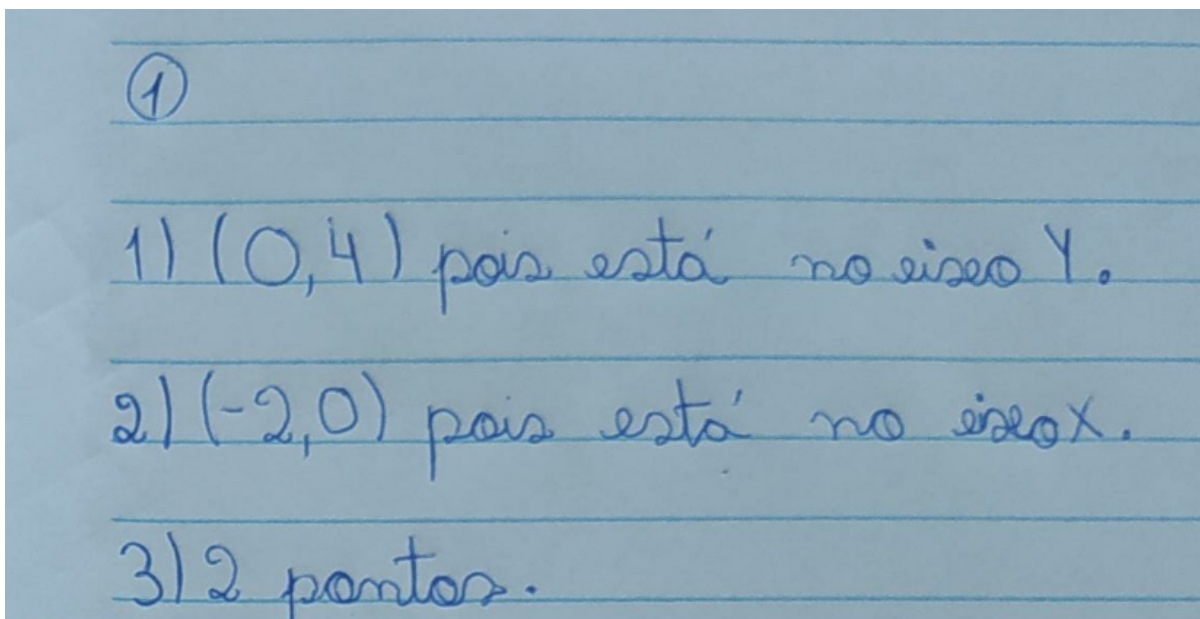 1
1) (0,4) pois está no eixo Y.
2) (-2,0) pois está no eixo X.
3) 2 pontos.